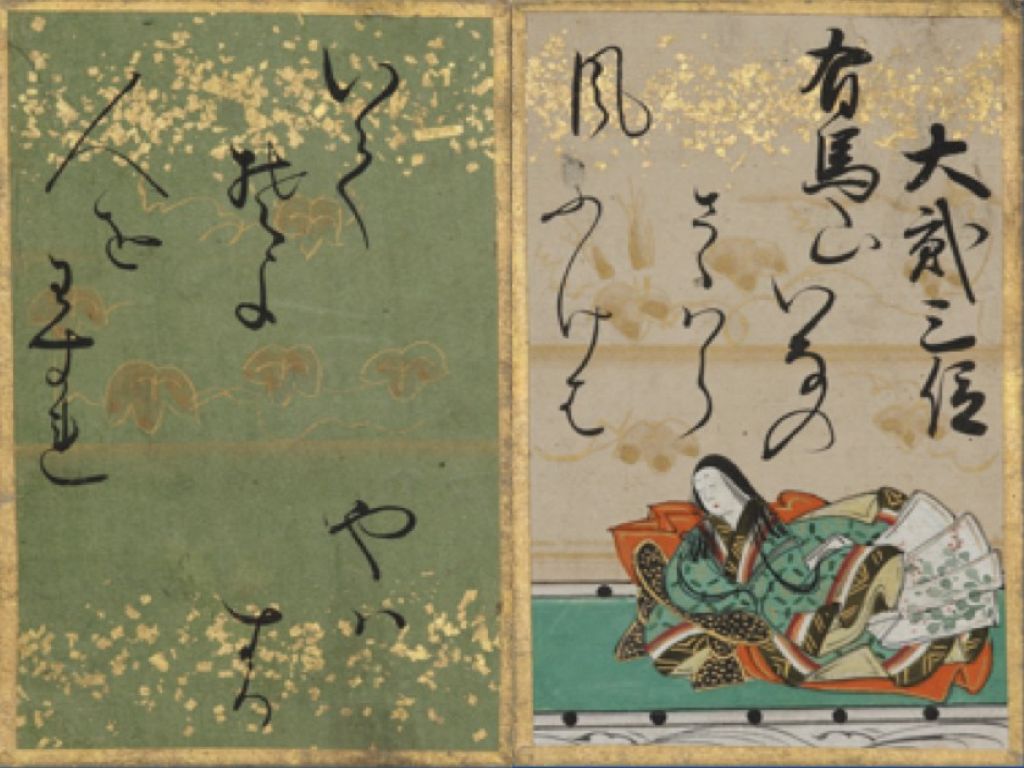 大貳三位
有馬山いなの
さゝはら
風ふけは
いて
そよ
人を
わすれ
やハ
する